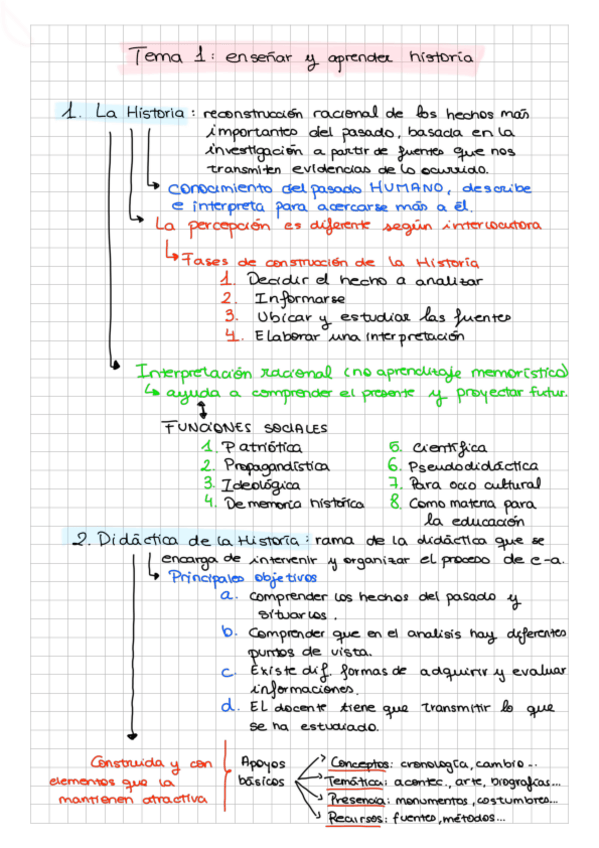 Tema 1: enseñar y aprender historia
1. La Historia: reconstrucción racional de los hechos más
importantes del pasado, basada en la
investigación a partir de fuentes que nos
transmiten evidencias de lo ocurrido.
conocimiento del pasado HUMANO, describe
e interpreta para acercarse más a él.
La percepción es diferente según interlocutora
Fases de construcción de la Historia
1. Decidir el hecho a analizar
2. Informarse
3. Ubicar y estudiar las fuentes
4. Elaborar una interpretación
Interpretación racional (no aprendizaje memorístico)
ayuda a comprender el presente y proyectar futur.
FUNCIONES SOCIALES
1. Patriótica
2. Propagandística
3. Ideológica
4. De memoria histórica
5. Científica
6. Pseudodidáctica
7. Para ocio cultural
8. Como materia para
la educación
2. Didáctica de la Historia: rama de la didáctica que se
encarga de intervenir y organizar el proceso de e-a.
Principales objetivos
a. comprender los hechos del pasado y
situarlos.
b. Comprender que en el analisis hay diferentes
puntos de vista.
c. Existe dif. formas de adquirir y evaluar
informaciones.
d. EL docente tiene que transmitir lo que
se ha estudiado.
Construida y con
elementos que la
mantienen atractiva
Apoyos
básicos
Conceptos: cronología, cambio...
Temática: acontec., arte, biografías...
Presencia: monumentos, costumbres...
Recursos: fuentes, métodos...